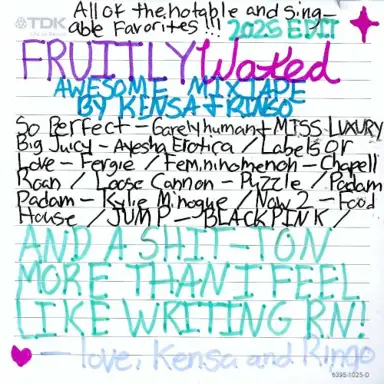 All of the notable and sing-
able Favorites!!! 2025 EDIT
TDK
FRUITLY Waked
AWESOME MIXTAPE
BY KENSA + RINGO
So Perfect - Barelyhuman + MISS LUXURY
Big Juicy - Ayesha Erotica / Labels or
Love - Fergie / Femininomenon - Chapell
Roan / Loose Cannon - Puzzle / Padam
Padam - Kylie Minogue / Now 2 - Food
House / JUMP - BLACKPINK /
AND A SHIT-TON
MORE THAN I FEEL
LIKE WRITING RN!
- love, Kensa and Ringo
6395-1025-D